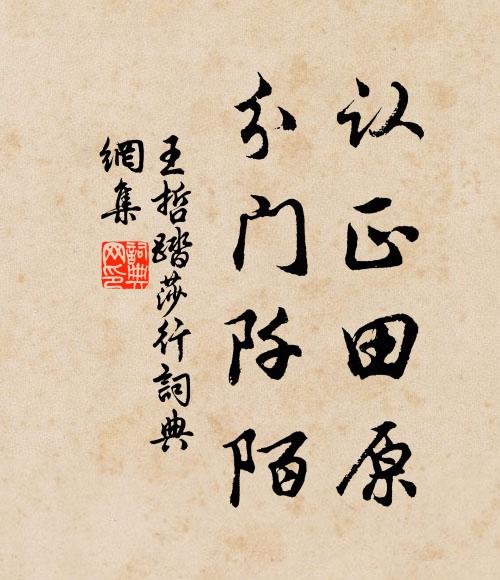 认正田原
分门阡陌
王哲踏莎行词典
網集
詞典網印